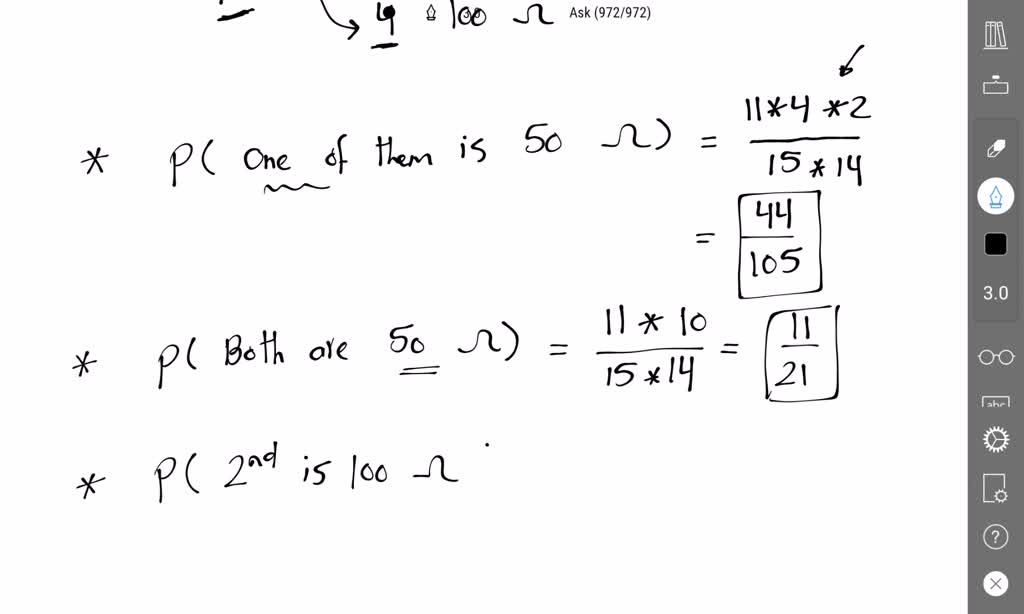 4 100 Ω Ask (972/972)
* P( One of them is 50 Ω) = 11*4*2 / 15*14
= 44/105
* P( Both are 50 Ω) = 11*10 / 15*14 = 11/21
* P( 2nd is 100 Ω
3.0
abc
?